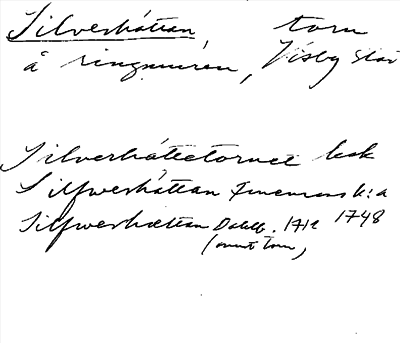 Silverhättan, torn
å ringmuren, Visby stad
Silverhättetornet
Silfwerhättan k:a 1748
Silfwerhættan Dahlb. 1712
(runt torn)